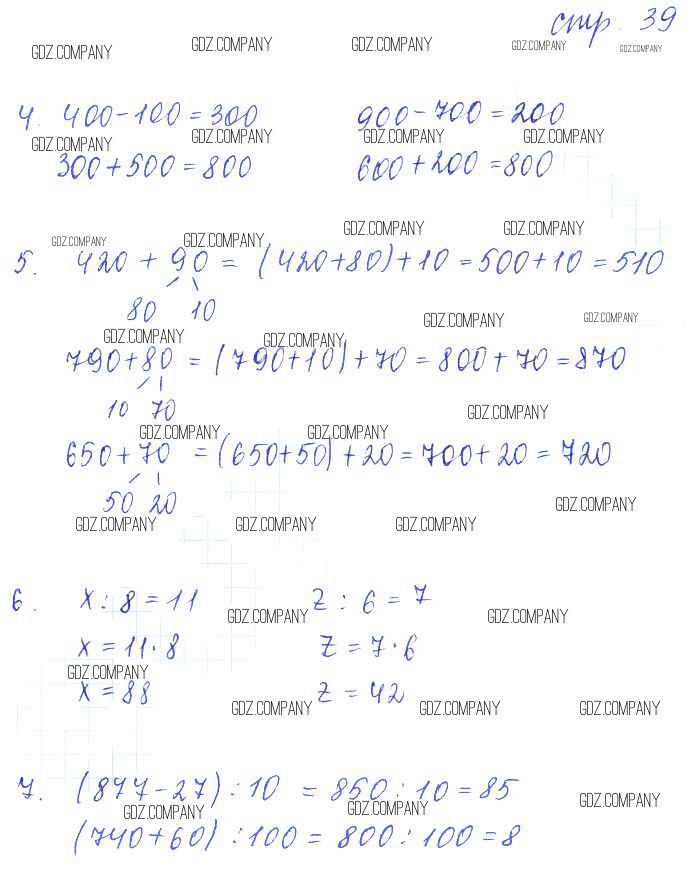 стр. 39
GDZ.COMPANY GDZ.COMPANY GDZ.COMPANY GDZ.COMPANY GDZ.COMPANY
4. 400-100=300 900-700=200
GDZ.COMPANY GDZ.COMPANY GDZ.COMPANY GDZ.COMPANY
300+500=800 600+200=800
GDZ.COMPANY GDZ.COMPANY GDZ.COMPANY GDZ.COMPANY
5. 420 + 90 = (420+80)+10=500+10=510
80 10
GDZ.COMPANY GDZ.COMPANY GDZ.COMPANY GDZ.COMPANY
790+80 = (790+10)+70=800+70=870
10 70
GDZ.COMPANY GDZ.COMPANY GDZ.COMPANY
650+70 = (650+50)+20=700+20=720
50 20
GDZ.COMPANY
GDZ.COMPANY GDZ.COMPANY GDZ.COMPANY
6. x:8=11 z:6=7
GDZ.COMPANY GDZ.COMPANY
x=11·8 z=7·6
GDZ.COMPANY
x=88 z=42
GDZ.COMPANY GDZ.COMPANY GDZ.COMPANY
7. (877-27):10 = 850:10=85
GDZ.COMPANY GDZ.COMPANY GDZ.COMPANY
(740+60):100=800:100=8